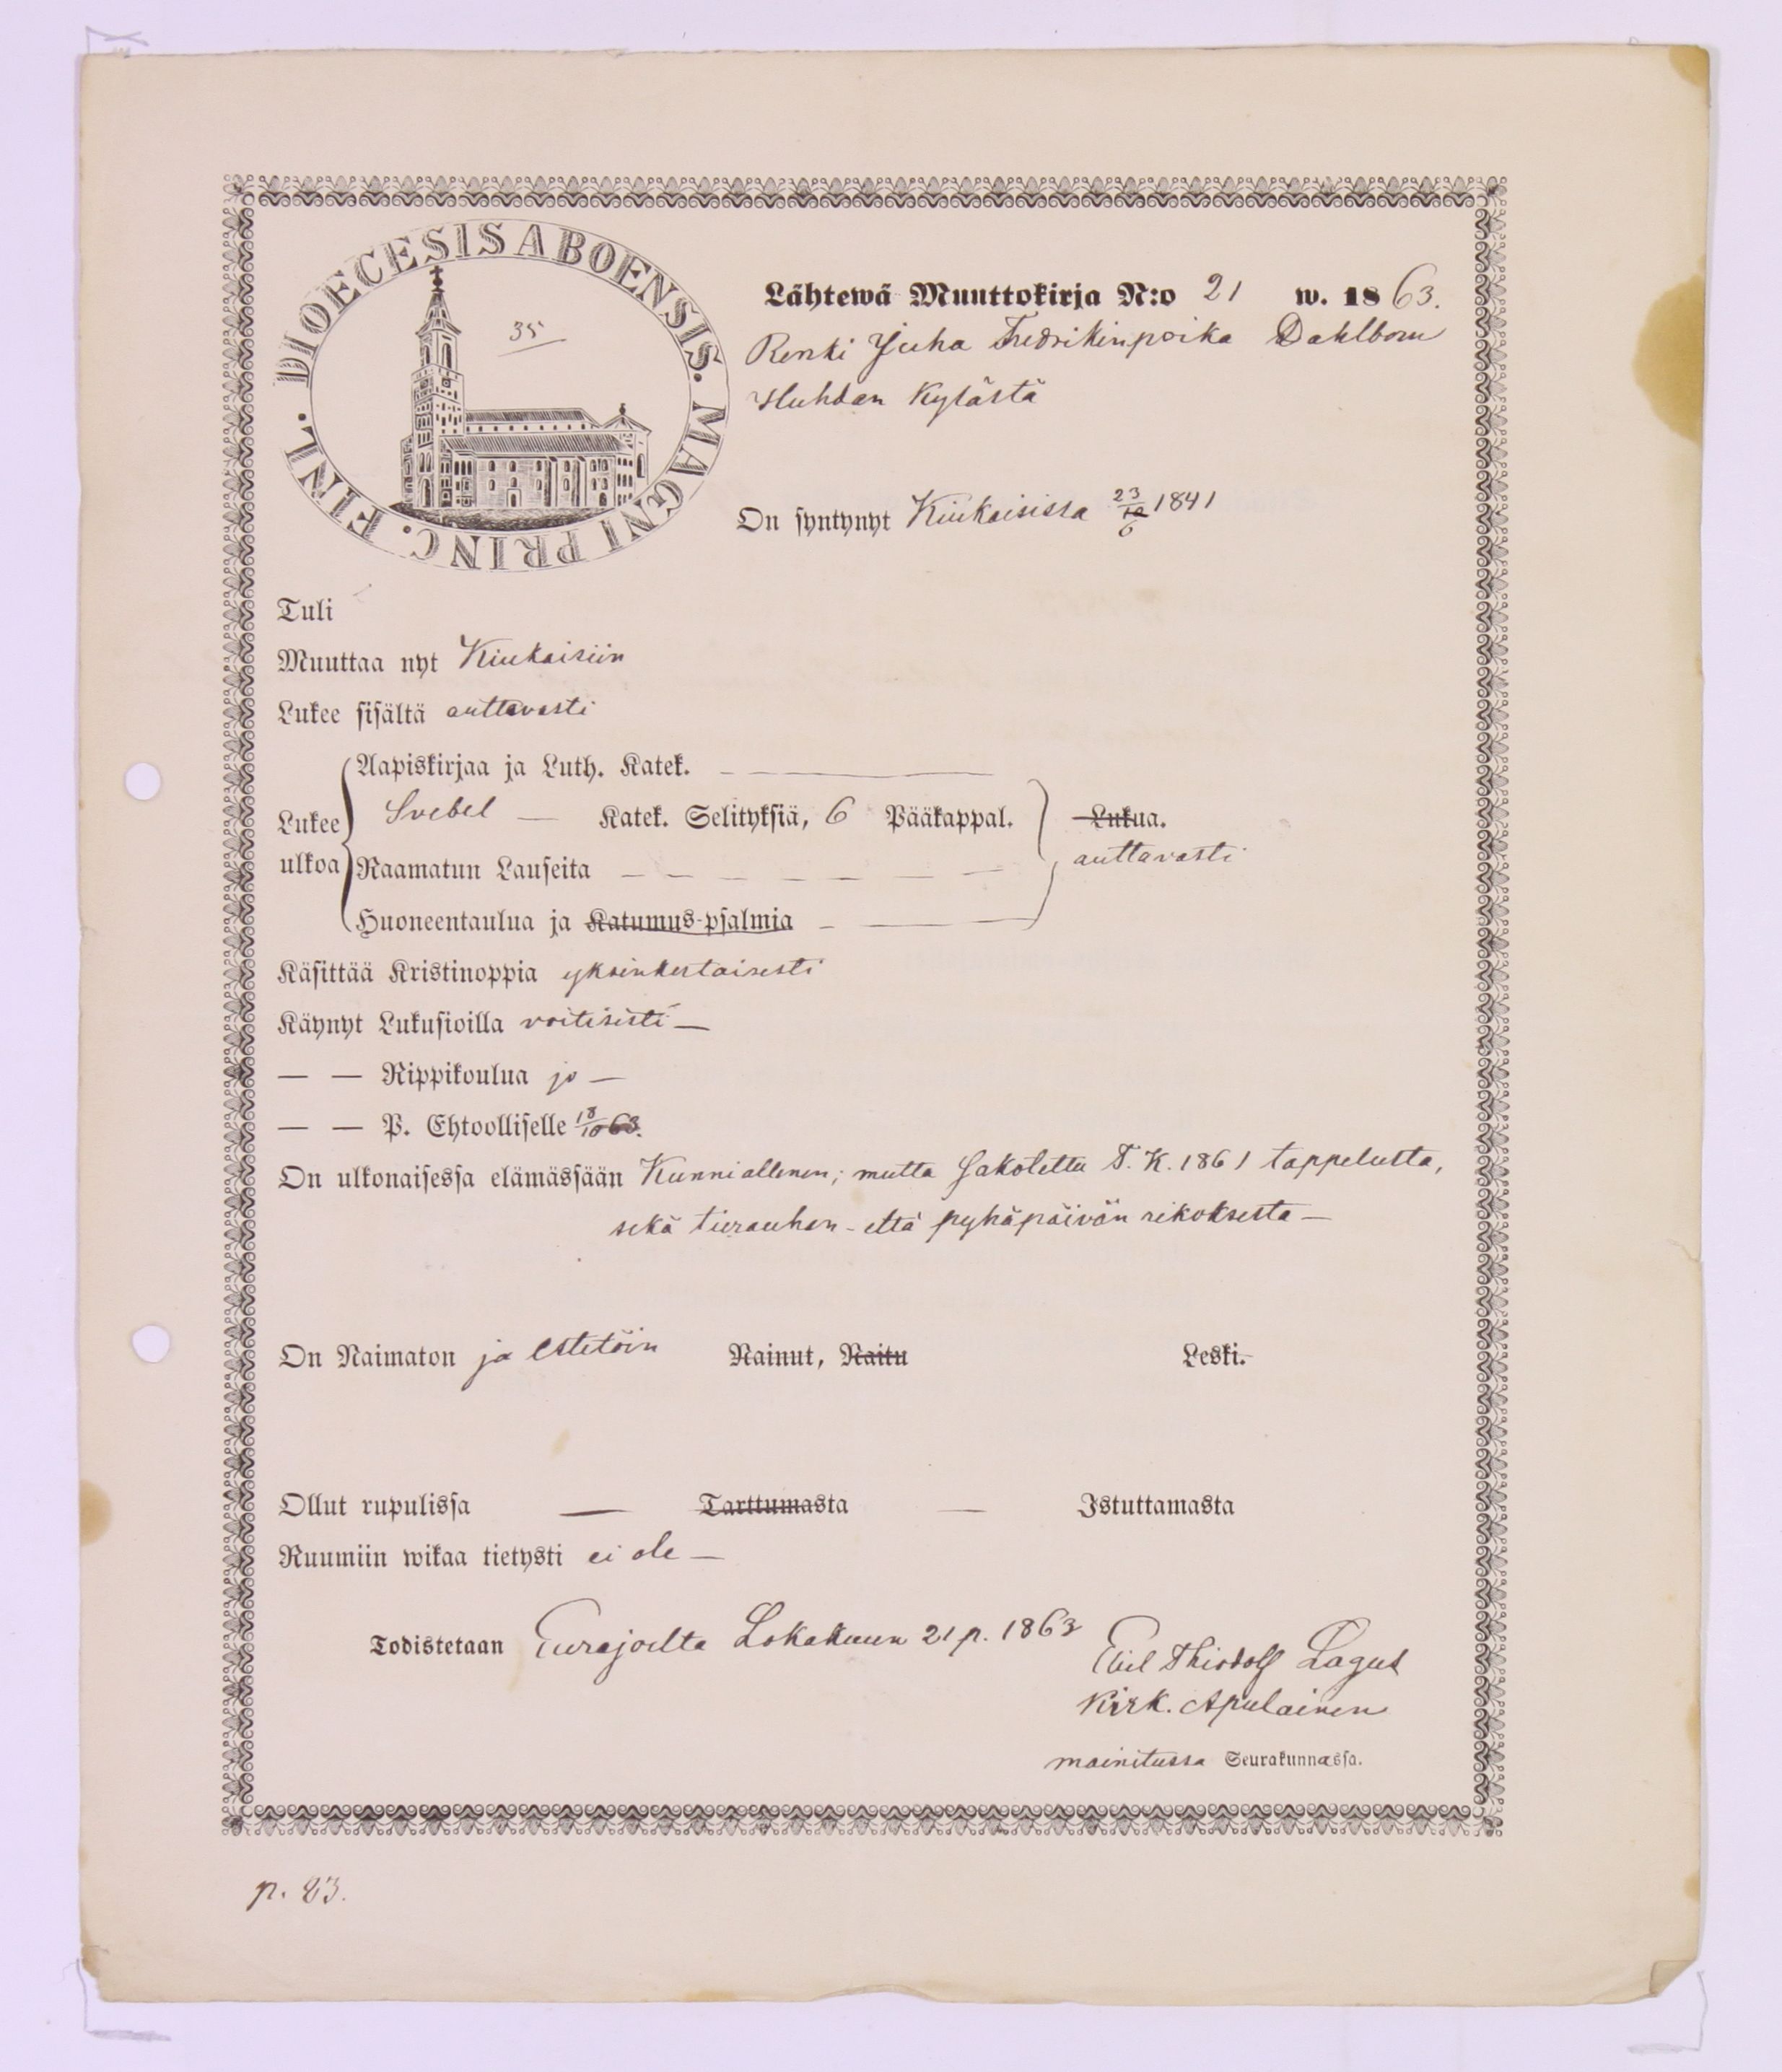 DIOECESIS ABOENSIS. MAGNI PRINC. FINL.
35
Lähtewä Muuttokirja N:o 21 w. 1863.
Renki Juha Fredrikinpoika Dahlbom
Huhdan Kylästä
On syntynyt Kiukaisissa 23/10 6 1841
Tuli
Muuttaa nyt Kiukaisiin
Lukee sisältä auttavasti
Aapiskirjaa ja Luth. Katek.
Lukee ulkoa
Svebel — Katek. Selityksiä, 6 Pääkappal.
Lukua.
auttavasti
Raamatun Lauseita
Huoneentaulua ja Katumus-psalmia
Käsittää Kristinoppia yksinkertaisesti
Käynyt Lukusioilla voitisesti —
— — Rippikoulua jo —
— — P. Ehtoolliselle 18/10 63.
On ulkonaisessa elämässään Kunniallinen; mutta Sakotettu T. K. 1861 tappelusta,
sekä tierauhan - että pyhäpäivän rikoksesta —
On Naimaton ja estetöin Nainut, Naitu Leski.
Ollut rupulissa — Tarttumasta — Istuttamasta
Ruumiin wikaa tietysti ei ole —
Todistetaan Eurajoelta Lokakuun 21 p. 1863
Thiodolf Lagus
Kirk. Apulainen
mainitussa Seurakunnassa.
p. 83.